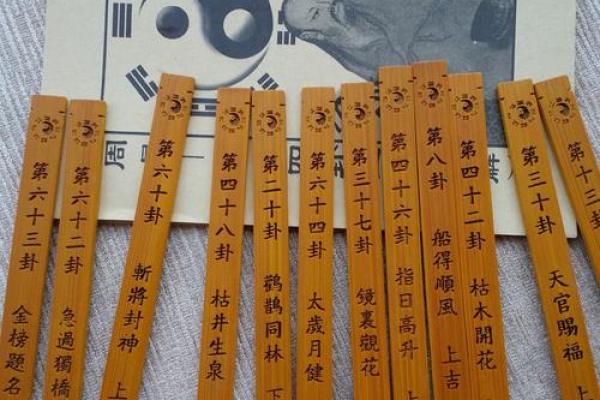 第六十三卦 金榜題名
第六十二卦 急過獨橋
第六十卦 斬將封神 上
第四十八卦 枯井生泉
第二十卦 鸛鵲同林 下
第六十四卦 太歲月健
第三十七卦 鏡裏觀花
第四十六卦 指日高升 上
第八卦 船得順風 上吉
第四十二卦 枯木開花
第三十卦 天官賜福 上
第十三
周